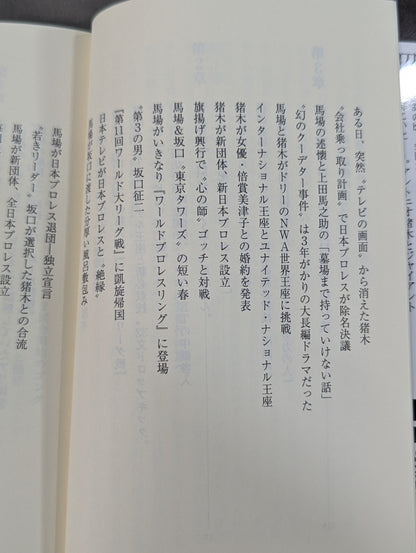 ある日、突然〝テレビの画面〟から消えた猪木
〝会社乗っ取り計画〟で日本プロレスが除名決議
馬場の述懐と上田馬之助の「墓場まで持っていけない話」
〝幻のクーデター事件〟は3年がかりの大長編ドラマだった
馬場と猪木がドリーのNWA世界王座に挑戦
インターナショナル王座とユナイテッド・ナショナル王座
猪木が女優・倍賞美津子との婚約を発表
猪木が新団体、新日本プロレス設立
旗揚げ興行で〝心の師〟ゴッチと対戦
馬場&坂口〝東京タワーズ〟の短い春
馬場がいきなり『ワールドプロレスリング』に登場
〝第3の男〟坂口征二
『第11回ワールド大リーグ戦』に凱旋帰国
日本テレビが日本プロレスと〝絶縁〟
馬場が坂口に渡した分厚い風呂敷包み
馬場が日本プロレス退団―独立宣言
〝若きリーダー〟坂口が選択した猪木との合流
馬場が新団体、全日本プロレス設立